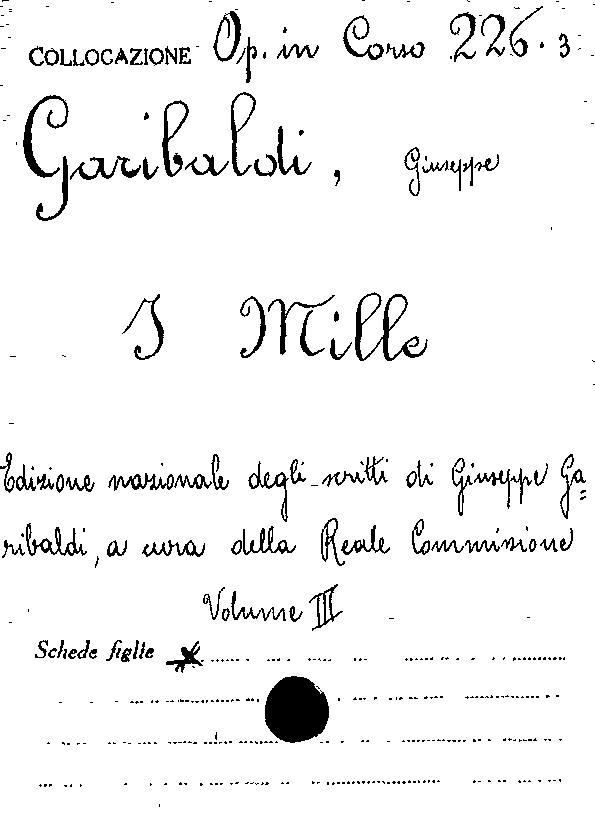 COLLOCAZIONE Op. in Corso 226.3
Garibaldi, Giuseppe
I Mille
Edizione nazionale degli scritti di Giuseppe Ga=
ribaldi, a cura della Reale Commissione
Volume III
Schede figlie